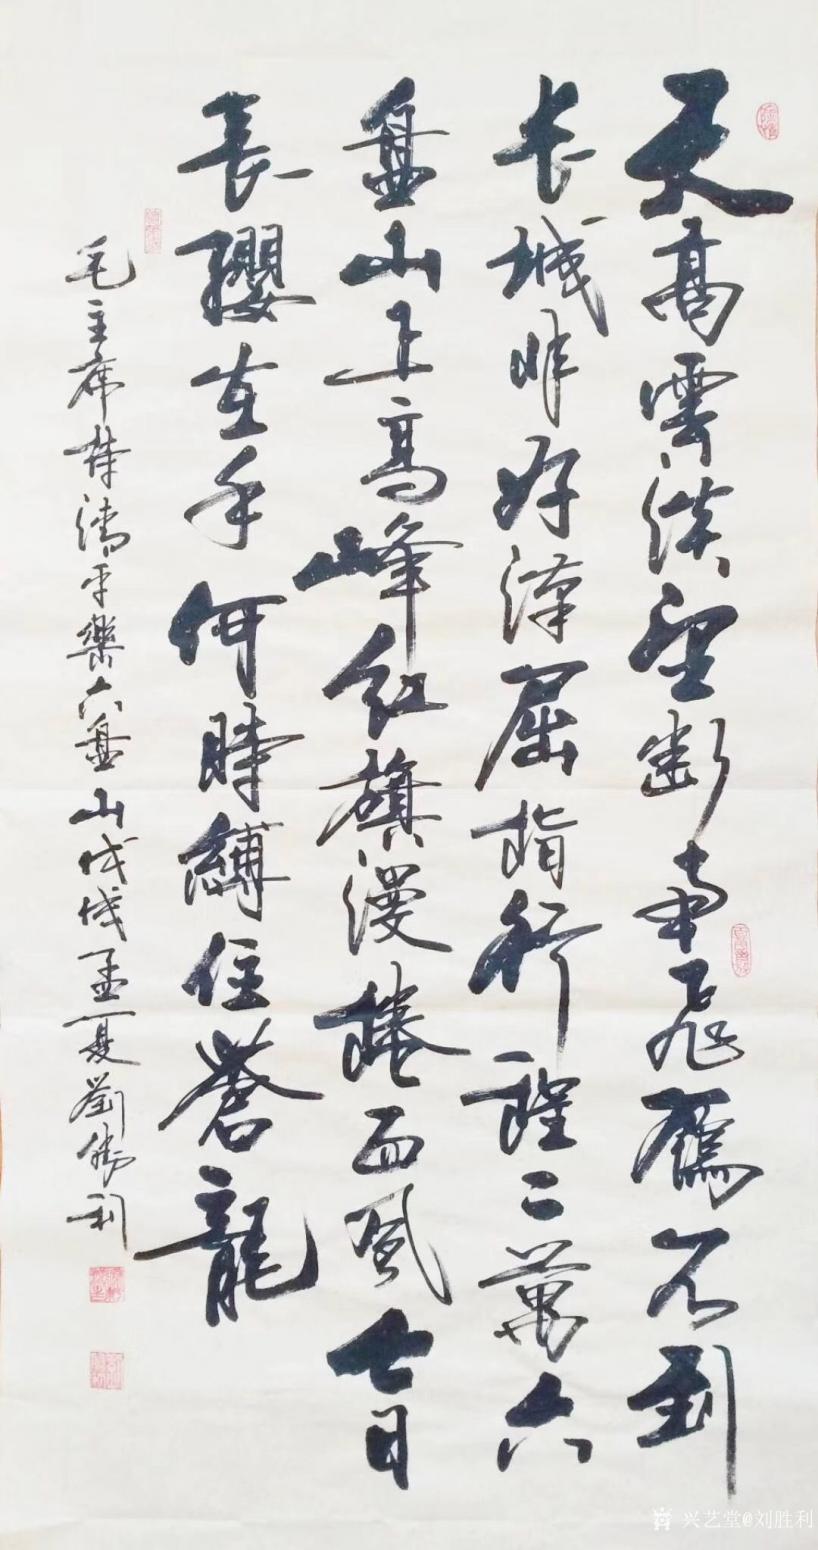 天高雲淡望斷南飛鴈不到
长城非好漢屈指行程二萬六
盘山上高峰紅旗漫捲西風今日
長纓在手何時縛住蒼龍
毛主席清平樂六盘山戊戌孟夏劉勝利
兴艺堂@刘胜利